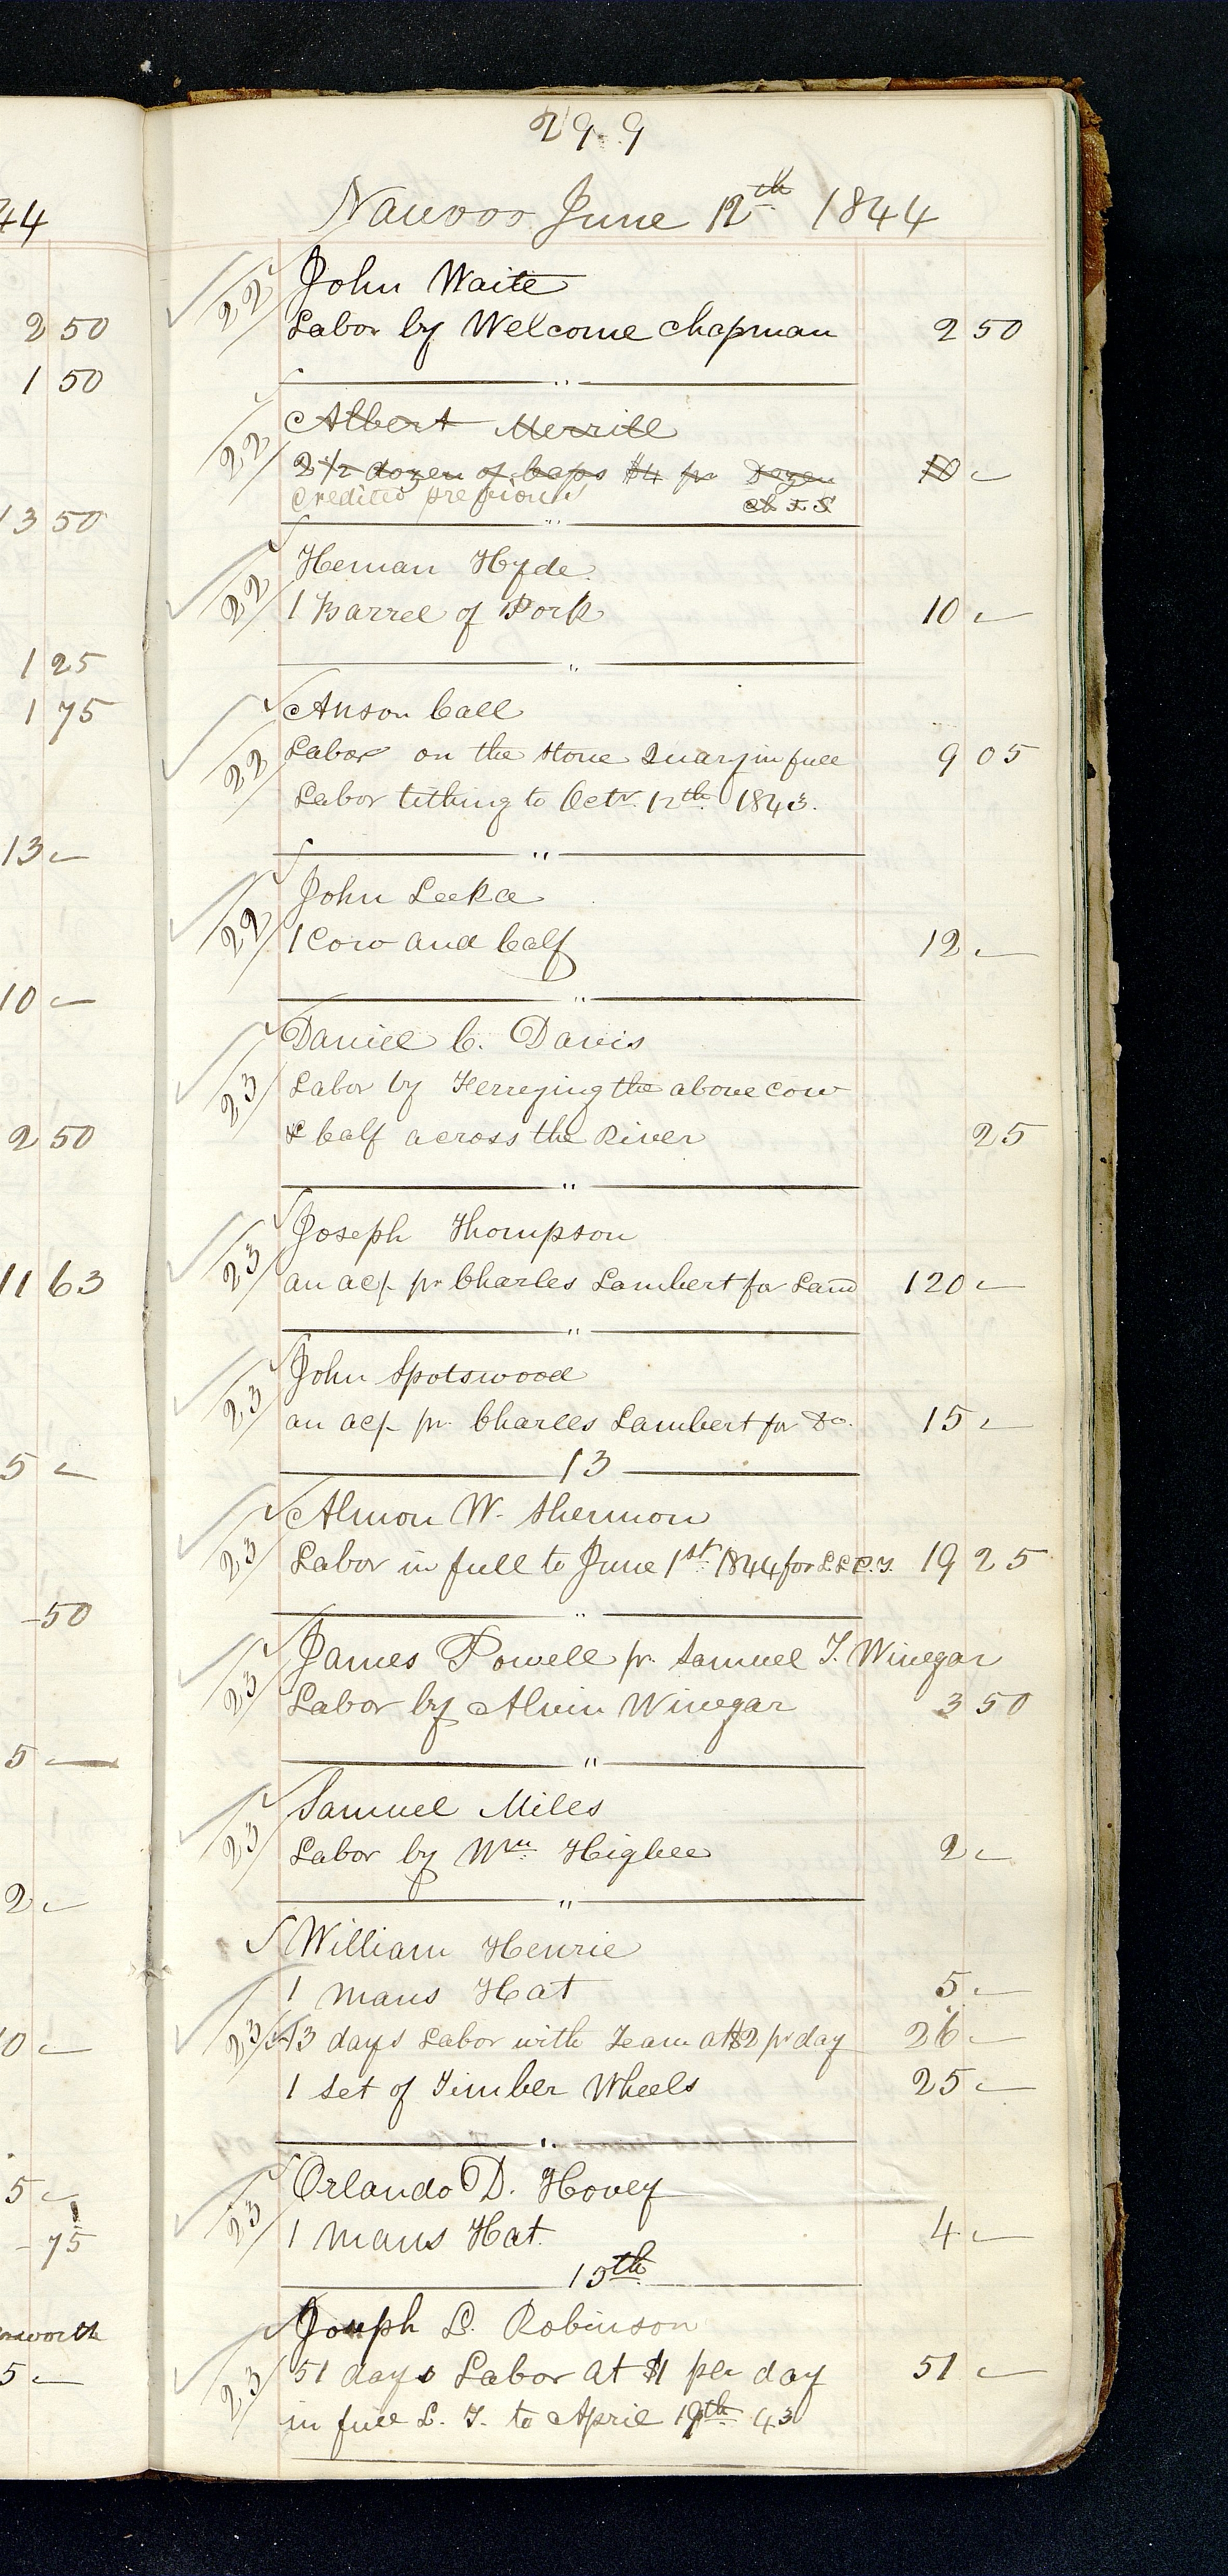 44
2 50
1 50
13 50
1 25
1 75
13 -
10 -
2 50
11 63
5 -
-50
5 -
2 -
0 -
5 -
- 75
worth
5 -
299
Nauvoo June 12th 1844
22 John Waite
Labor by Welcome Chapman 2 50
"
22 Albert Merrill
2 1/2 dozen of caps $4 pr Dozen 10 -
Credited previous
"
22 Heman Hyde
1 Barrel of Pork 10 -
"
22 Anson Call
Labor on the Stone Quary in full 9 05
Labor tithing to Octr. 12th 1843.
"
22 John Leeka
1 Cow and Calf 12 -
"
23 Daniel C. Davis
Labor by Ferrying the above cow
& Calf across the River 25
"
23 Joseph Thompson
an acp pr Charles Lambert for Land 120 -
"
23 John Spotswood
an acp pr. Charles Lambert for Do. 15 -
13
23 Almon W. Shermon
Labor in full to June 1st 1844 for 19 25
"
23 James Powell pr. Samuel T. Winegar
Labor by Alvin Winegar 3 50
"
23 Samuel Miles
Labor by Wm Higbee 2 -
"
William Henrie
1 mans Hat 5 -
23 13 days Labor with Team at $2 pr day 26 -
1 Set of Timber Wheels 25 -
"
23 Orlando D. Hovey
1 mans Hat 4 -
15th
Joseph L. Robinson
23 51 days Labor at $1 per day 51 -
in full L. T. to April 19th 43